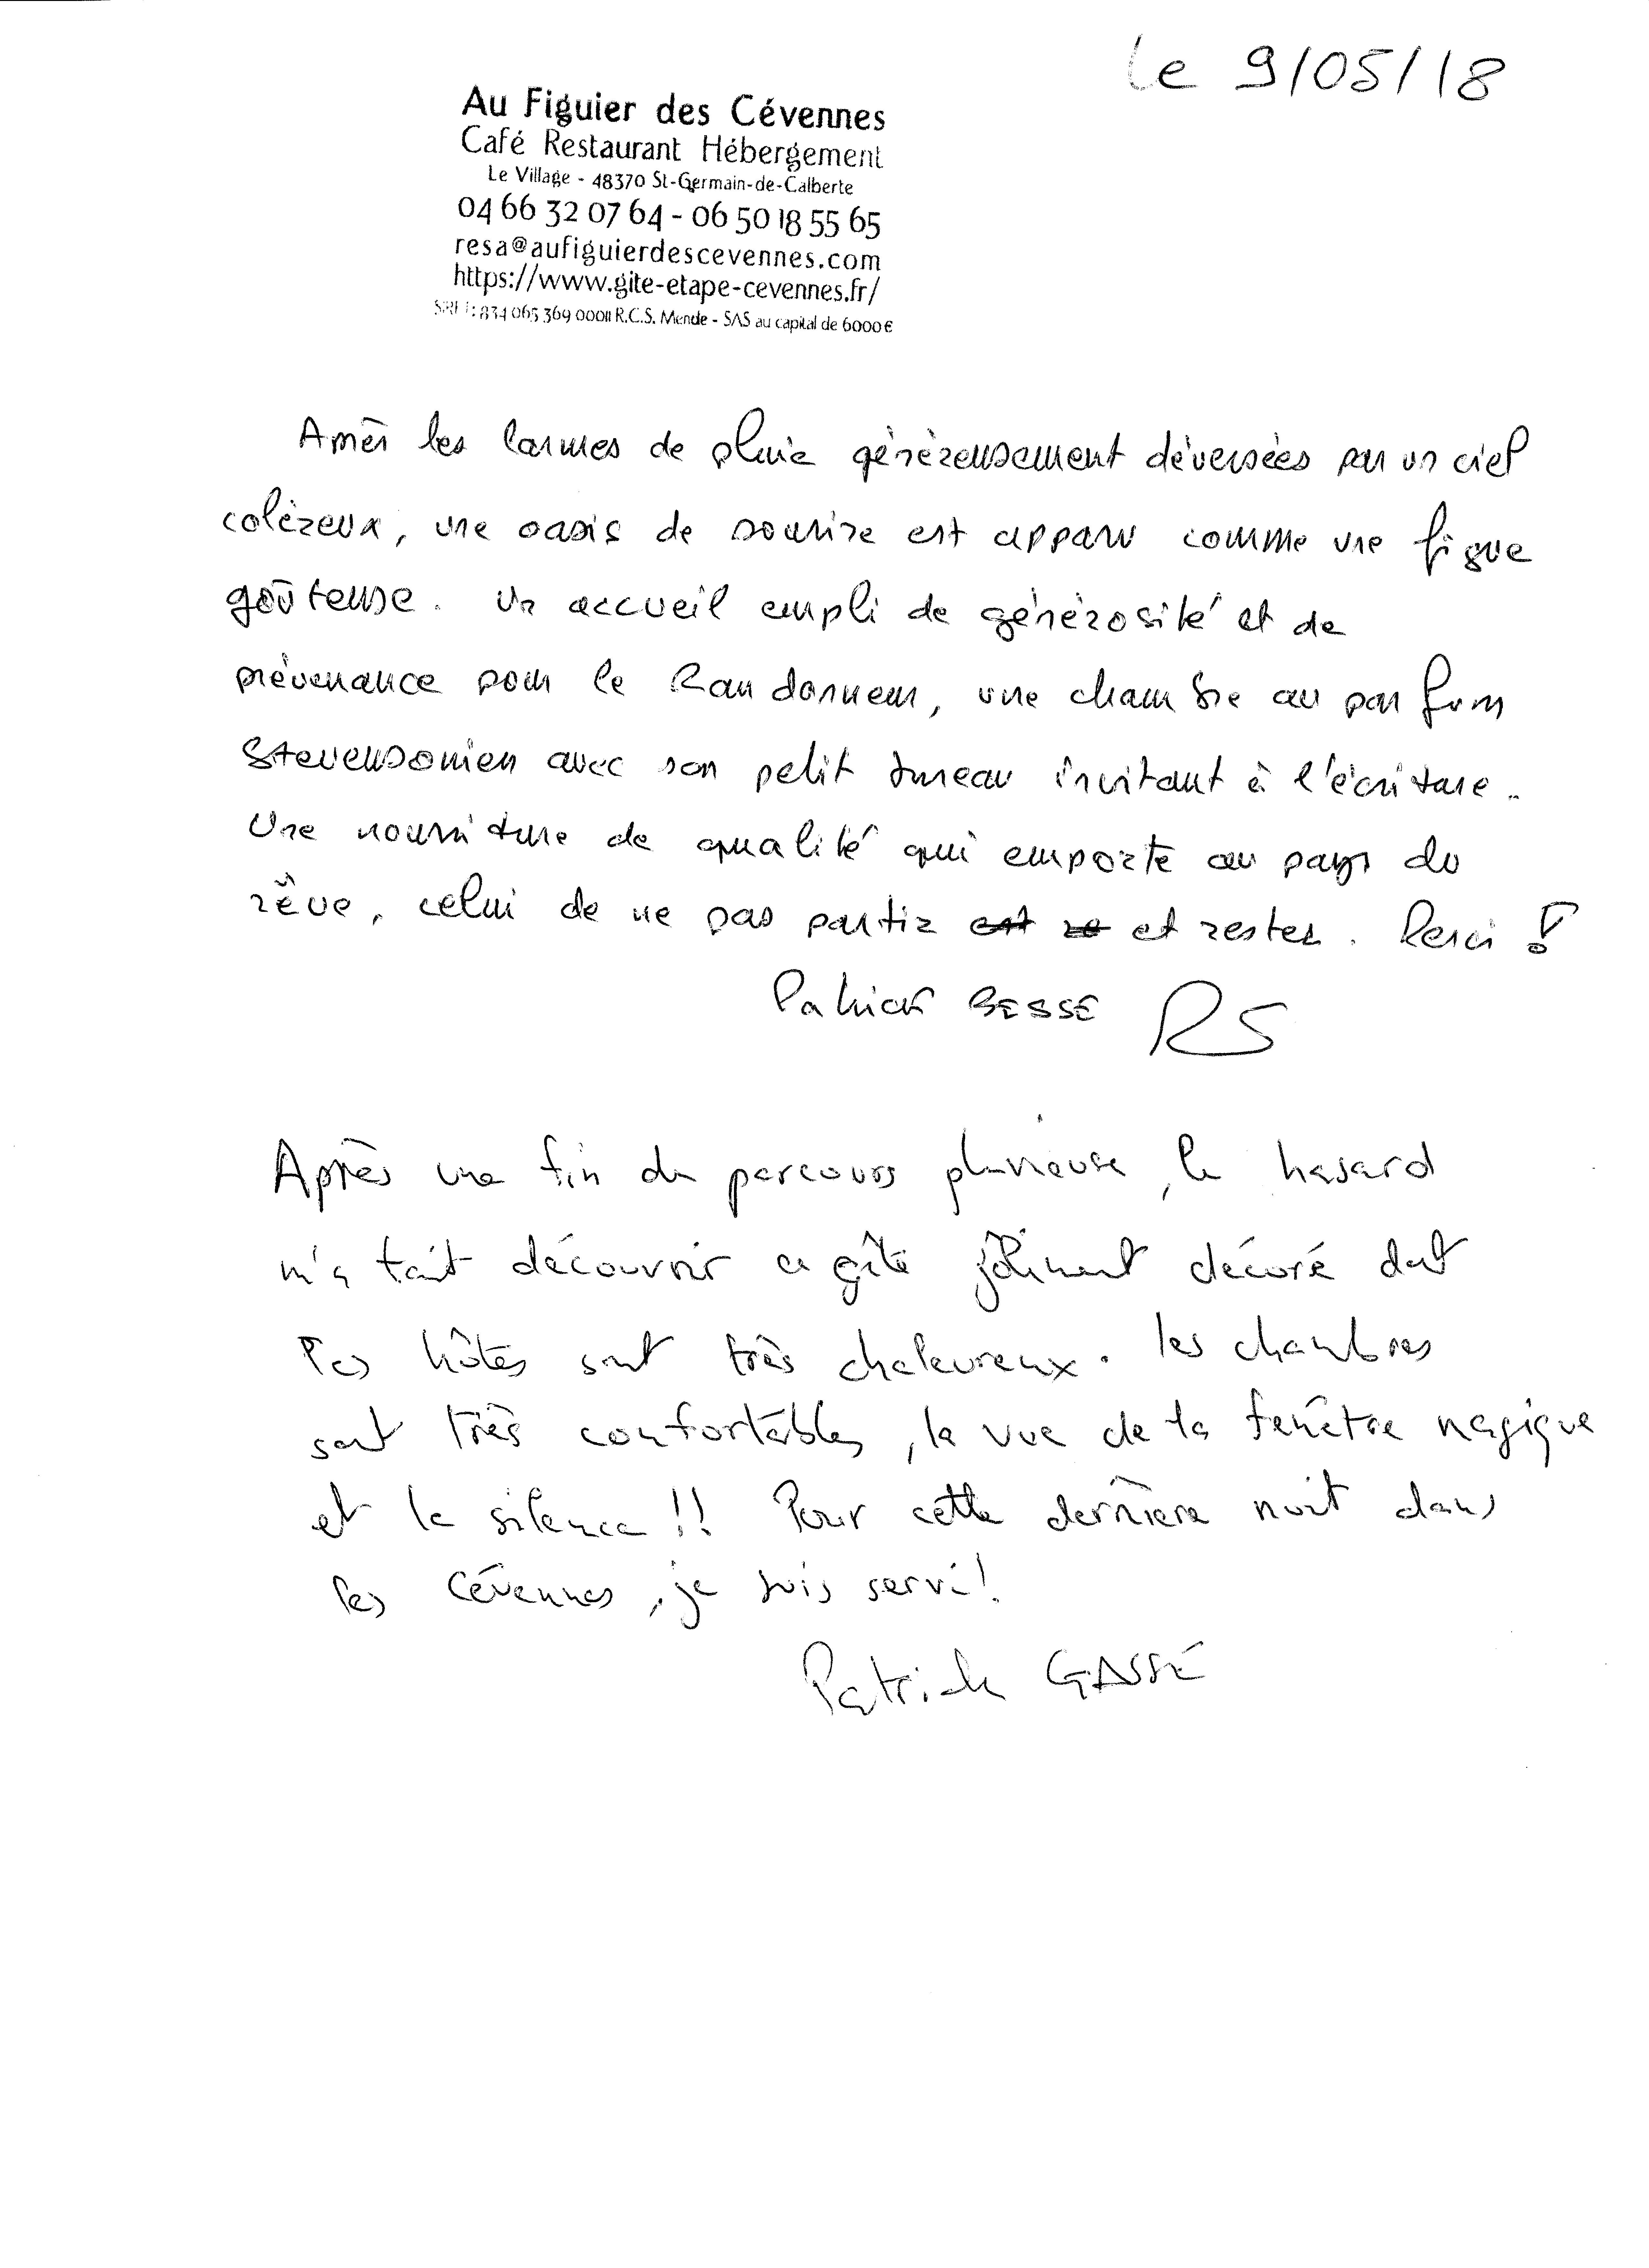 le 9/05/18
Au Figuier des Cévennes
Café Restaurant Hébergement
Le Village - 48370 St-Germain-de-Calberte
04 66 32 07 64 - 06 50 18 55 65
resa@aufiguierdescevennes.com
https://www.gite-etape-cevennes.fr/
SIRET: 834 065 369 00011 R.C.S. Mende - SAS au capital de 6000€
Après les larmes de pluie généreusement déversées par un ciel
coléreux, une oasis de sourire est apparu comme une figue
goûteuse. Un accueil empli de générosité et de
prévenance pour le Randonneur, une chambre au parfum
Stevensonien avec son petit bureau invitant à l'écriture.
Une nourriture de qualité qui emporte au pays du
rêve, celui de ne pas partir est re et rester. Merci !
Patrick BESSE
Après une fin de parcours pluvieuse, le hasard
m'a fait découvrir ce gîte joliment décoré dont
les hôtes sont très chaleureux. les chambres
sont très confortables, la vue de la fenêtre magique
et le silence !! Pour cette dernière nuit dans
les Cévennes, je suis servi!
Patrick GASSÉ